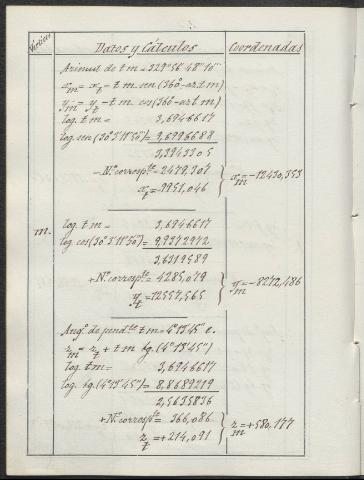 Vértices
Datos y Cálculos
Coordenadas
Azimut de t m = 329° 56' 48" 10'''
log. t m = 3,6946617
log. sen (30° 3' 11" 50''') = 9,6996688
3,3943305
- N.º corresp.te = 2479,307
x t = -9951,046
x m = -12430,353
m.
log. t m = 3,6946617
log. cos (30° 3' 11" 50''') = 9,9372972
3,6319589
+ N.º corresp.te = 4285,079
y m = -8272,486
Ang.º de pend.te t m = 4° 13' 45" e.
z m = z t + t m tg. (4° 13' 45")
log. t m = 3,6946617
log. tg. (4° 13' 45") = 8,8689219
2,5635836
+ N.º corresp.te = 366,086
z t = +214,091
z m = +580,177